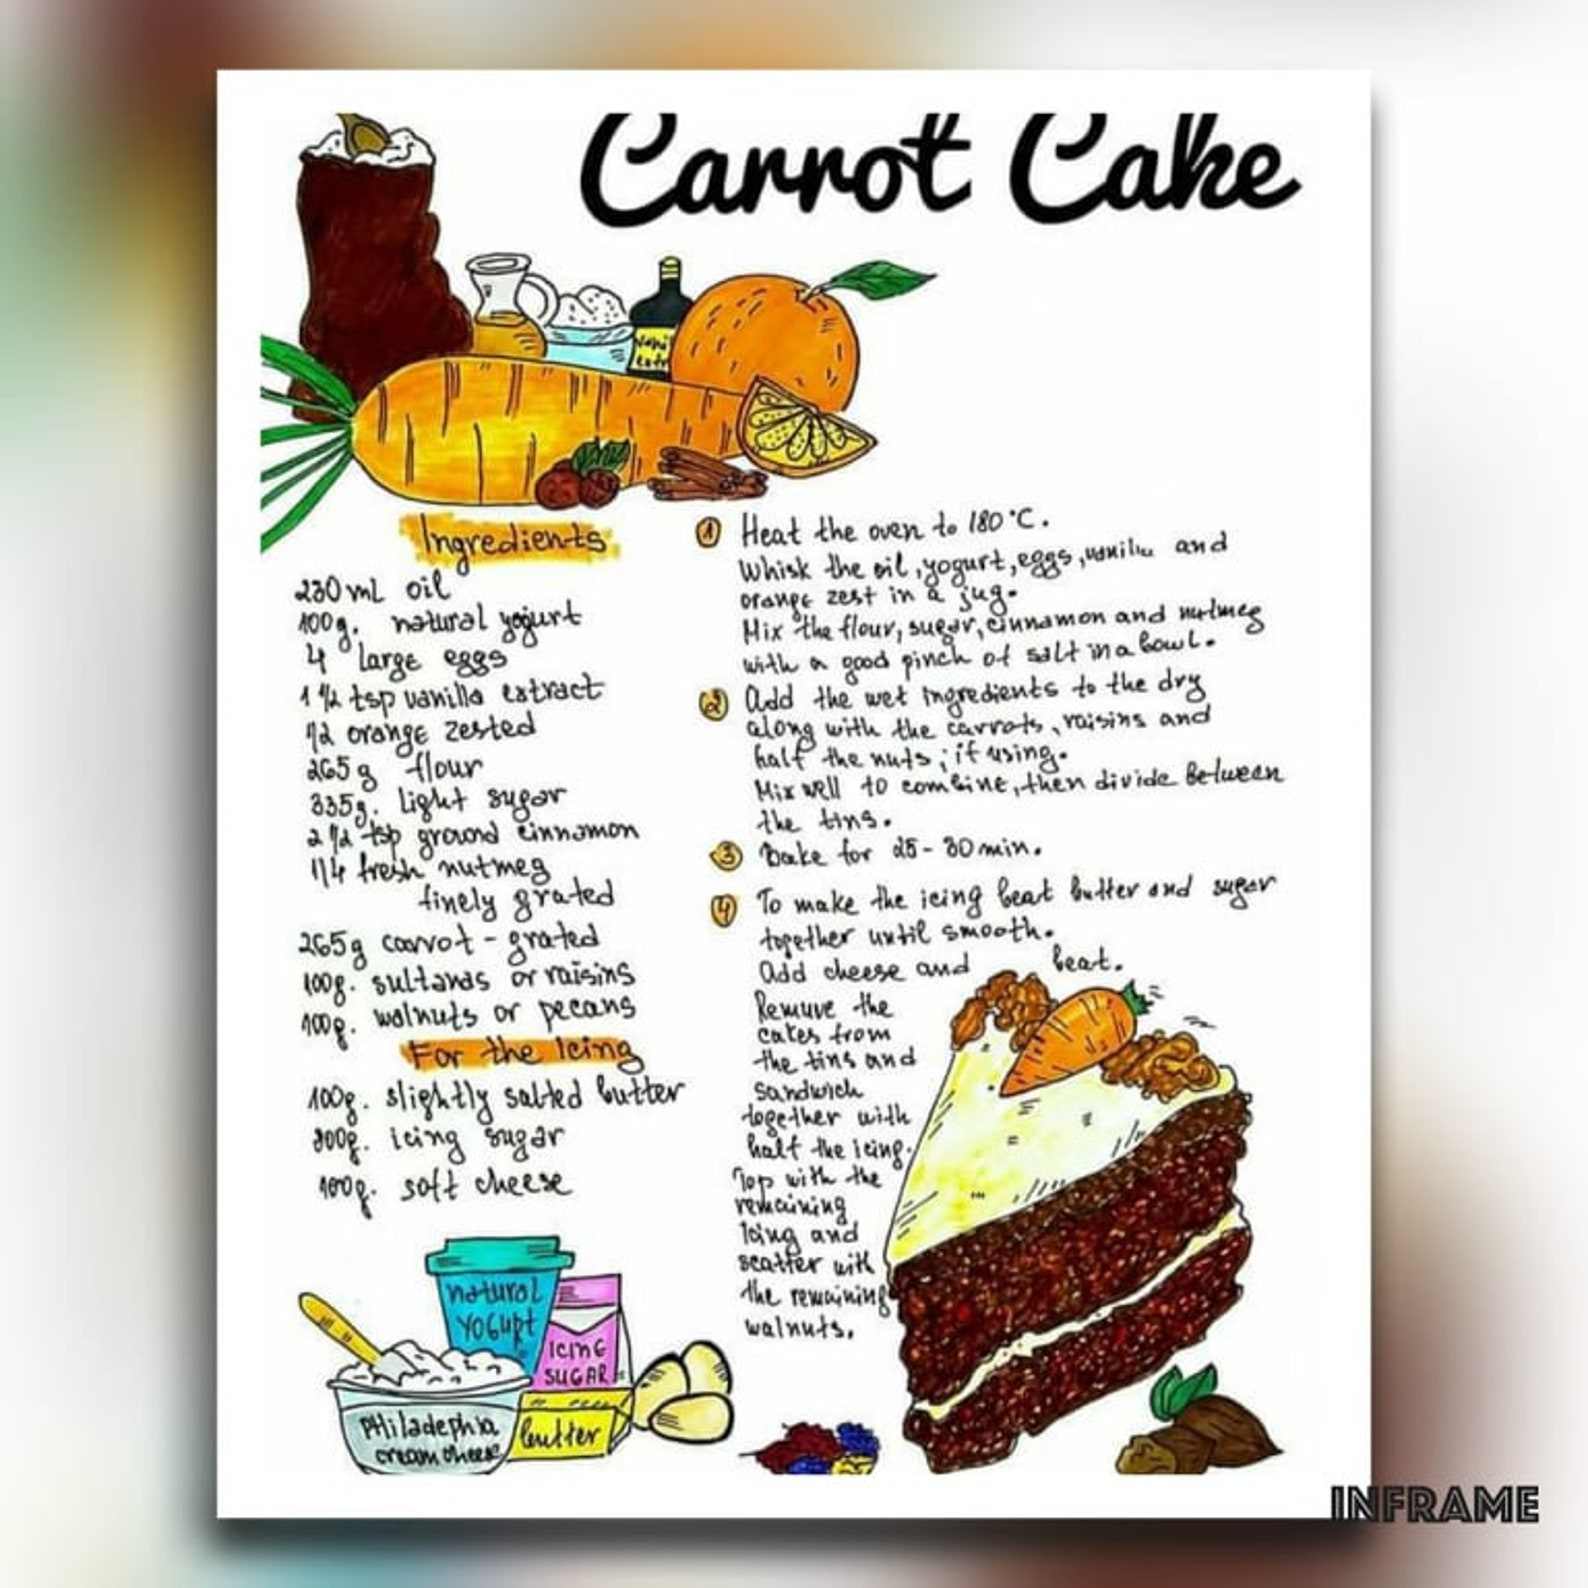 Carrot Cake
Vani
extr
Ingredients
230ml oil
100g. natural yogurt
4 large eggs
1 1/2 tsp vanilla extract
1/2 orange zested
265g flour
335g. light sugar
2 1/2 tsp ground cinnamon
1/4 fresh nutmeg
finely grated
265g carrot - grated
100g. sultanas or raisins
100g. walnuts or pecans
For the Icing
100g. slightly salted butter
300g. icing sugar
100g. soft cheese
natural
YOGURT
ICING
SUGAR
PHiladephia
cream cheese
butter
1 Heat the oven to 180°C.
Whisk the oil, yogurt, eggs, vanilla and
orange zest in a jug.
Mix the flour, sugar, cinnamon and nutmeg
with a good pinch of salt in a bowl.
2 Add the wet ingredients to the dry
along with the carrots, raisins and
half the nuts, if using.
Mix well to combine, then divide between
the tins.
3 Bake for 25-30min.
4 To make the icing beat butter and sugar
together until smooth.
Add cheese and beat.
Remuve the
cakes from
the tins and
sandwich
together with
half the icing.
Top with the
remaining
Icing and
scatter with
the remaining
walnuts.
INFRAME